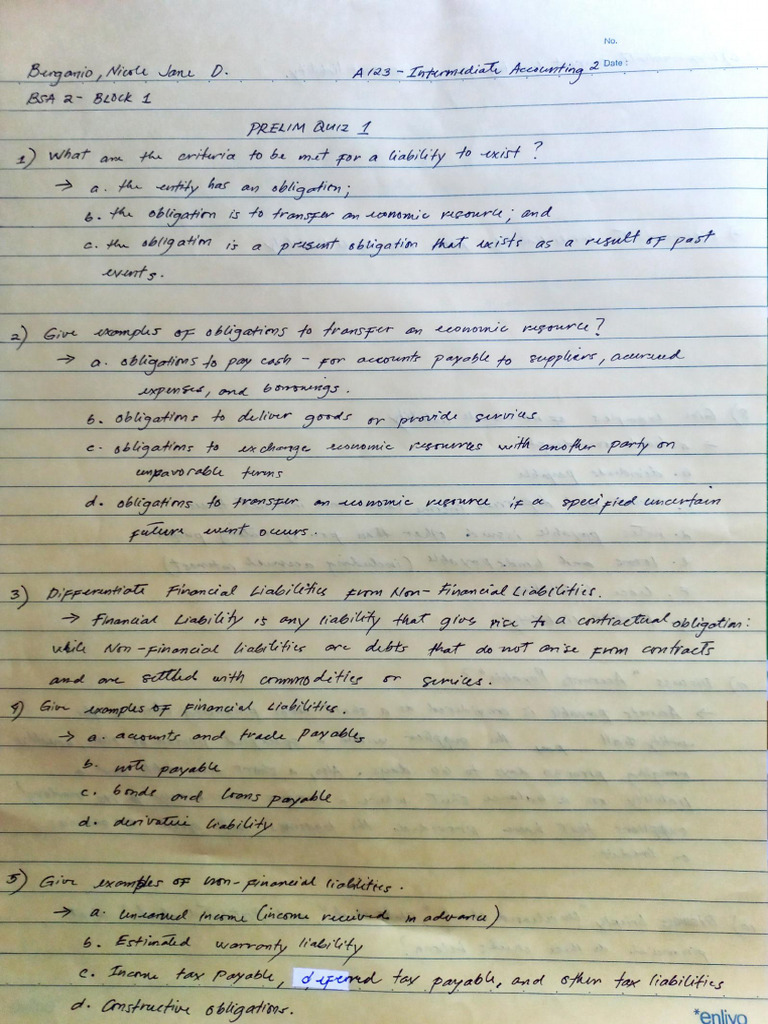 No.
Berganio, Nicole Jane D. A123 - Intermediate Accounting 2 Date :
BSA 2 - BLOCK 1
PRELIM QUIZ 1
1) What are the criteria to be met for a liability to exist ?
→ a. the entity has an obligation;
b. the obligation is to transfer an economic resource; and
c. the obligation is a present obligation that exists as a result of past
events.
2) Give examples of obligations to transfer an economic resource?
→ a. obligations to pay cash - for accounts payable to suppliers, accrued
expenses, and borrowings.
b. obligations to deliver goods or provide services
c. obligations to exchange economic resources with another party on
unfavorable terms
d. obligations to transfer an economic resource if a specified uncertain
future event occurs.
3) Differentiate Financial Liabilities from Non-Financial Liabilities.
→ Financial Liability is any liability that gives rise to a contractual obligation:
while Non-financial liabilities are debts that do not arise from contracts
and are settled with commodities or services.
4) Give examples of Financial Liabilities.
→ a. accounts and trade payables
b. note payable
c. bonds and loans payable
d. derivative liability
5) Give examples of non-financial liabilities.
→ a. unearned income (income received in advance)
b. Estimated warranty liability
c. Income tax payable, deferred tax payable, and other tax liabilities
d. Constructive obligations.
*enlivo